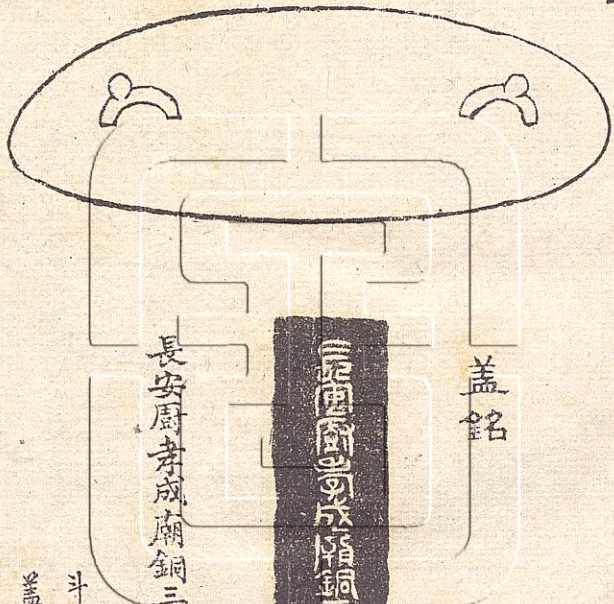 蓋銘
長安厨孝成廟銅
長安厨孝成廟銅三
斗
蓋